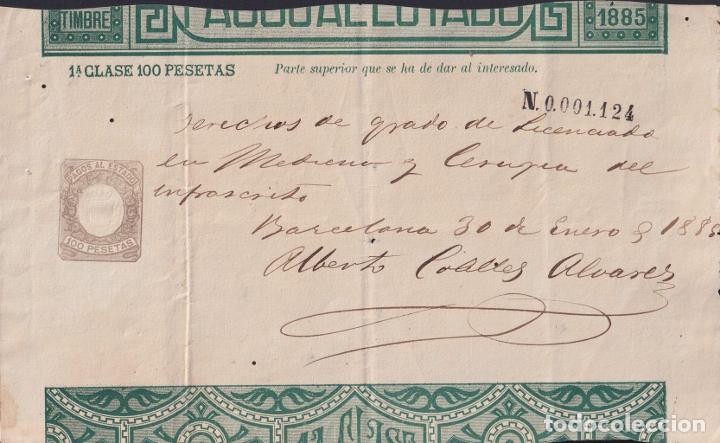 TIMBRE PAGOS AL ESTADO 1885
1ª CLASE 100 PESETAS Parte superior que se ha de dar al interesado.
N.0.001.124
Derechos de grado de Licenciado
en Medicina y Cirugia del
infrascrito
PAGOS AL ESTADO
100 PESETAS
Barcelona 30 de Enero de 1885
Alberto Alvarez
1ª CLASE
todocoleccion.net